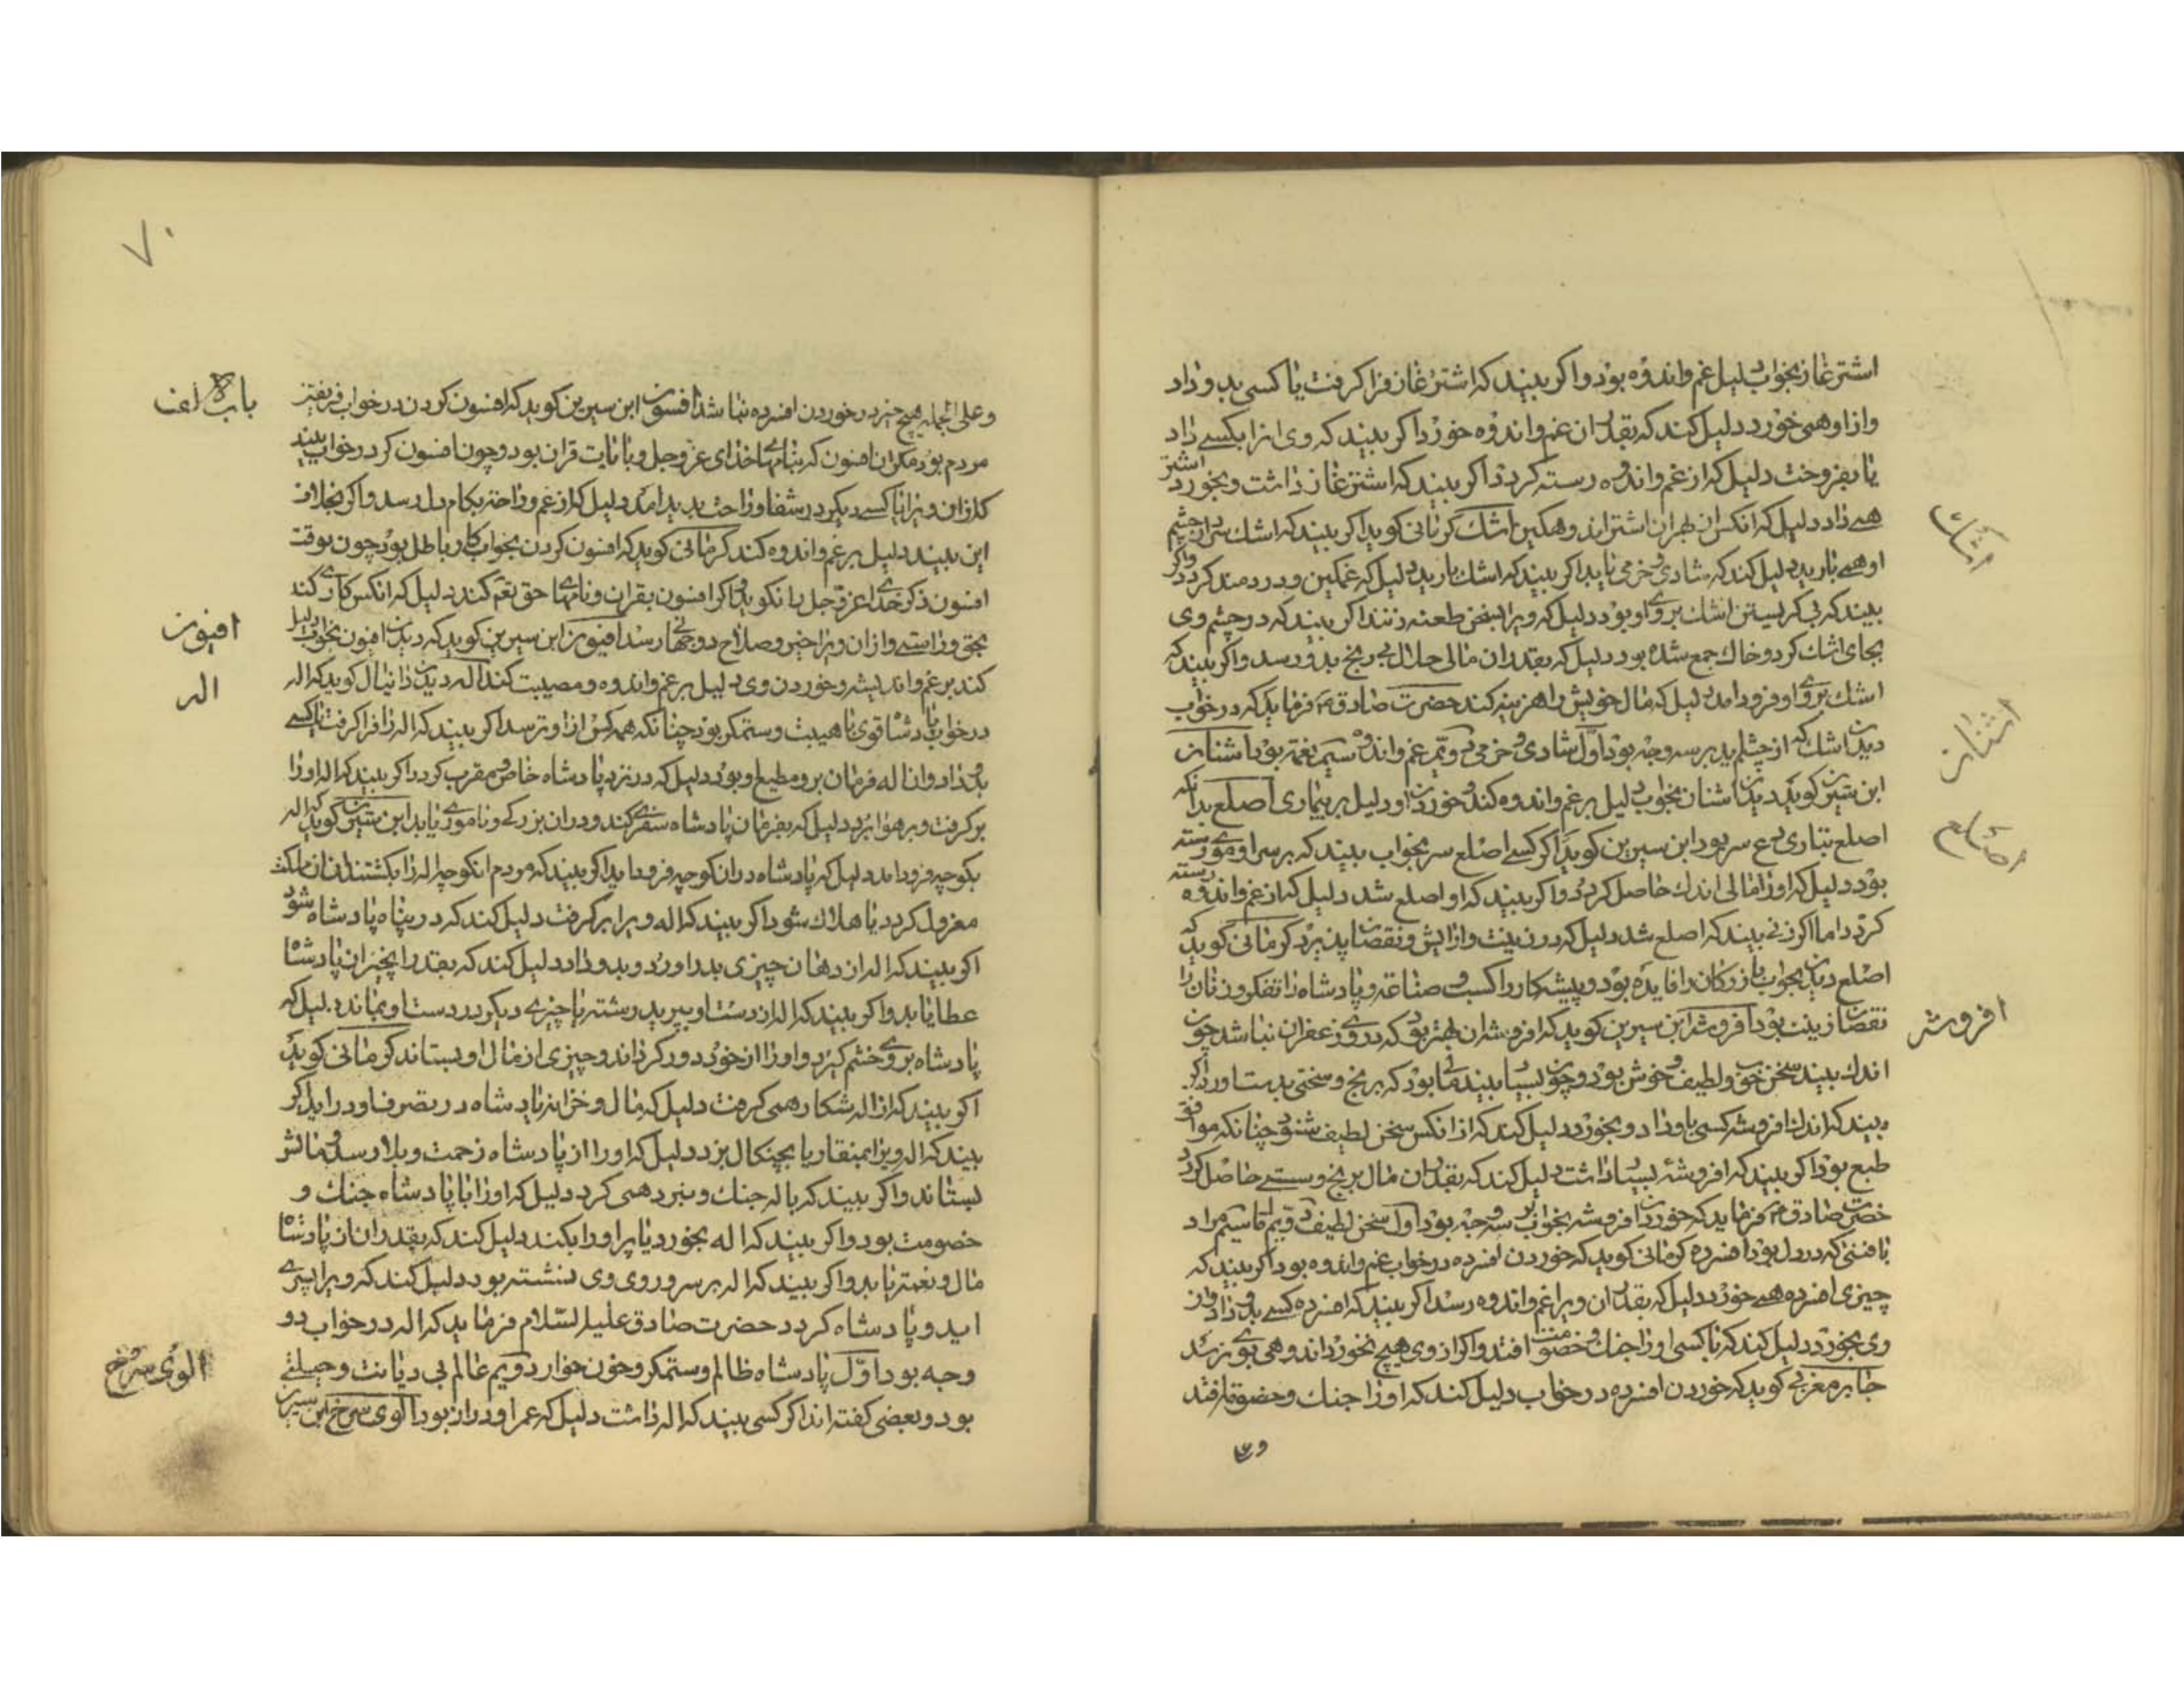 اشترغاز بخواب دلیل غم واندوه بود واکر بیند که اشترغاز فرا کرفت یا کسی بدو داد
وازاو همی خورد دلیل کند که بقدر ان غم واندوه خورد اکر بیند که وی انرا بکسی داد
یا بفروخت دلیل که از غم واندوه رسته کردد اکر بیند که اشترغاز داشت وبخورد اشتر
همی داد دلیل که انکس از بهر ان اشتر اندوهکین اشک کرمانی کوید اکر بیند که اشک سرد از چشم
او همی بارید دلیل کند که شادی و خرمی یابد اکر بیند که اشک بارید دلیل که غمکین ودردمند کردد واکر
بیند که بی کریستن اشک بر روی او بود دلیل که ویرا بسخن طعنه زنند اکر بیند که در چشم وی
بجای اشک کرد و خاک جمع شده بود دلیل که بقدر ان مالی حلال بی رنج بدو رسد واکر بیند که
اشک بروی او فرود امد دلیل که مال خویش را هزینه کند حضرت صادق ع فرماید که در خواب
دیدن اشک که از چشم اید بر سه وجه بود اول شادی و خرمی دویم غم واندوه سیم نعمت بود اشنان
ابن سیرین کوید دیدن اشنان بخواب دلیل بر غم واندوه کند و خوردن او دلیل بر بیماری اصلع بدانکه
اصلع بتازی سر بود ابن سیرین کوید اکر کسی اصلع سر بخواب بیند که بر سر او موی رسته
بود دلیل که اورا مالی اندک حاصل کردد واکر بیند که او اصلع شد دلیل که از غم واندوه رسته
کردد اما اکر زنی بیند که اصلع شد دلیل که در زینت وارایش و نقصان پذیرد کرمانی کوید که
اصلع دیدن بخواب بازرکان را فایده بود و پیشه کار را کسب و صناعه و پادشاه را تفکر و زنان را
نقصان زینت بود افروشه ابن سیرین کوید که افروشه ان بهتر بود که در وی زعفران نباشد چون
اندک بیند سخن خوب ولطیف و خوش بود و چون بسیار بیند مالی بود که برنج و سختی بدست اورد اکر
بیند که اندک افروشه کسی باو داد و بخورد دلیل کند که از انکس سخن لطیف شنود چنانکه موافق
طبع بود اکر بیند که افروشه بسیار داشت دلیل کند که بقدر ان مال برنج و سستی حاصل کردد
حضرت صادق ع فرماید که خوردن افروشه بخواب بر سه وجه بود اول سخن لطیف دویم مال سیم مراد
یافتنی که در دل بود افسرده کرمانی کوید که خوردن افسرده در خواب غم واندوه بود اکر بیند که
چیزی افسرده همی خورد دلیل که بقدر ان ویرا غم واندوه رسد اکر بیند که افسرده کسی بدو داد واز
وی بخورد دلیل کند که با کسی اورا جنک و خصومت افتد واکر از وی هیچ نخورد اندوهی بوی نرسد
جابر مغربی کوید که خوردن افسرده در خواب دلیل کند که اورا جنک وخصومت افتد
اشک
اشنان
اصلع
افروشه
۷۰
وعلی الجمله هیچ خیر در خوردن افسرده نباشد افسون ابن سیرین کوید که افسون کردن در خواب فریفتن
مردم بود مکر ان افسون که بنامهای خدای عز وجل وبایات قران بود وچون افسون کرد در خواب بیند
که از ان ویرا یا کسی دیکر در شفا و راحت پدید امد دلیل که از غم و راحت بکام دل رسد واکر بخلاف
این بیند دلیل بر غم واندوه کند کرمانی کوید که افسون کردن بخواب کار باطل بود چون بوقت
افسون ذکر خدای عز وجل را نکوید واکر افسون بقران و نامهای حق تعم کند دلیل که انکس کاری کند
بحق وراستی وازان ویرا خیر وصلاح دو جهانی رسد افیون ابن سیرین کوید که دیدن افیون بخواب دلیل
کند بر غم واندیشه وخوردن وی دلیل بر غم واندوه ومصیبت کند اله دیدن دانیال کوید که اله
در خواب پادشاه قوی با هیبت وستمکر بود چنانکه همه کس از او ترسد اکر بیند که اله را فرا کرفت یا کسی
بدو داد وان اله فرمان بر ومطیع او بود دلیل که در نزد پادشاه خاص و مقرب کردد اکر بیند که اله اورا
برکرفت وبر هوا برد دلیل که بفرمان پادشاه سفری کند ودران بزرکی ونامودی یابد ابن سیرین کوید که اله
بکوچه فرود امد دلیل که پادشاه دران کوچه فرود اید اکر بیند که مردم انکوچه اله را بکشتند ان ملک
معزول کردد یا هلاک شود اکر بیند که اله ویرا برکرفت دلیل کند که در پناه پادشاه شود
اکر بیند که اله از دهان چیزی بدر اورد وبدو داد دلیل کند که بقدر انچیز ان پادشاه
عطا یابد واکر بیند که اله از دست او بپرید و رشته یا چیزی دیکر در دست او بماند دلیل که
پادشاه بروی خشم کیرد و اورا از خود دور کرداند وچیزی از مال او بستاند کرمانی کوید
اکر بیند که از اله شکار همی کرفت دلیل که مال و خزانه پادشاه در تصرف او در اید اکر
بیند که اله ویرا بمنقار یا بچنکال بزد دلیل که اورا از پادشاه زحمت وبلا رسد و مالش
بستاند واکر بیند که با اله جنک ونبرد همی کرد دلیل که اورا با پادشاه جنک و
خصومت بود واکر بیند که اله بخورد یا پر اورا بکند دلیل کند که بقدر ان از پادشاه
مال و نعمت یابد واکر بیند که اله بر سر وروی وی نشسته بود دلیل کند که ویرا پسری
اید و پادشاه کردد حضرت صادق علیه السلام فرماید که اله در خواب دو
وجه بود اول پادشاه ظالم وستمکر وخون خوار دویم عالم بی دیانت و حیلتی
بود وبعضی کفته اند اکر کسی بیند که اله داشت دلیل که عمر او دراز بود الوی سرخ ابن سیرین
باب الالف
افیون
اله
الوی سرخ